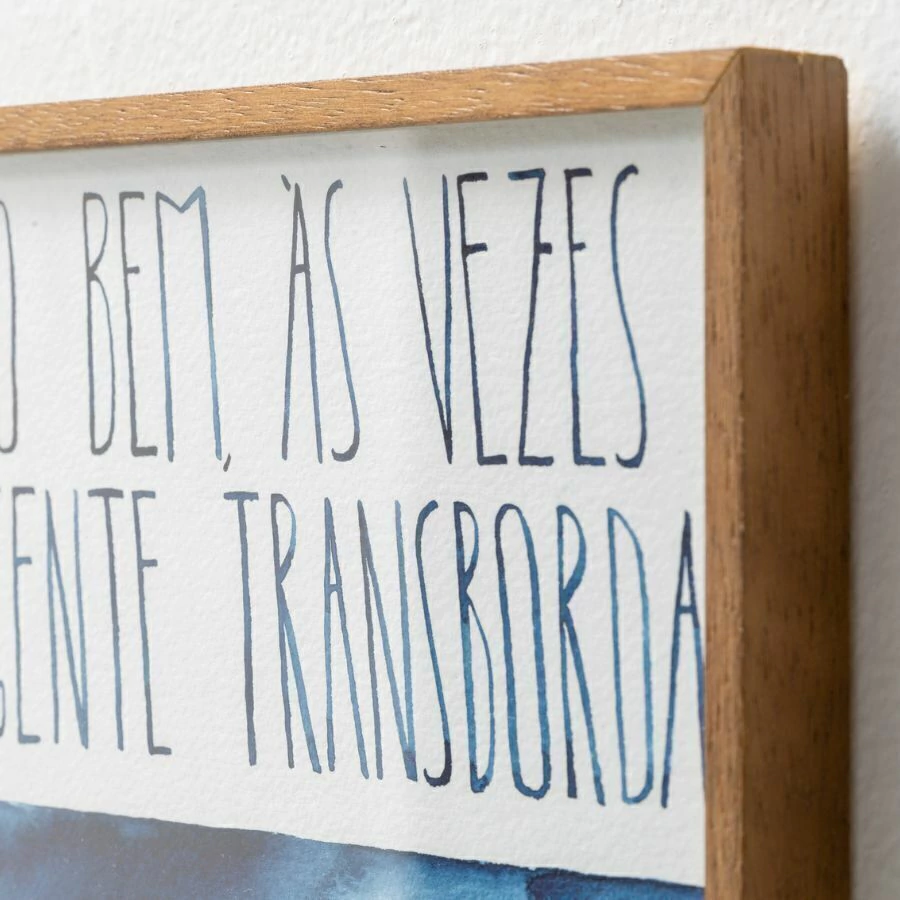 O BEM, ÀS VEZES
GENTE TRANSBORDA